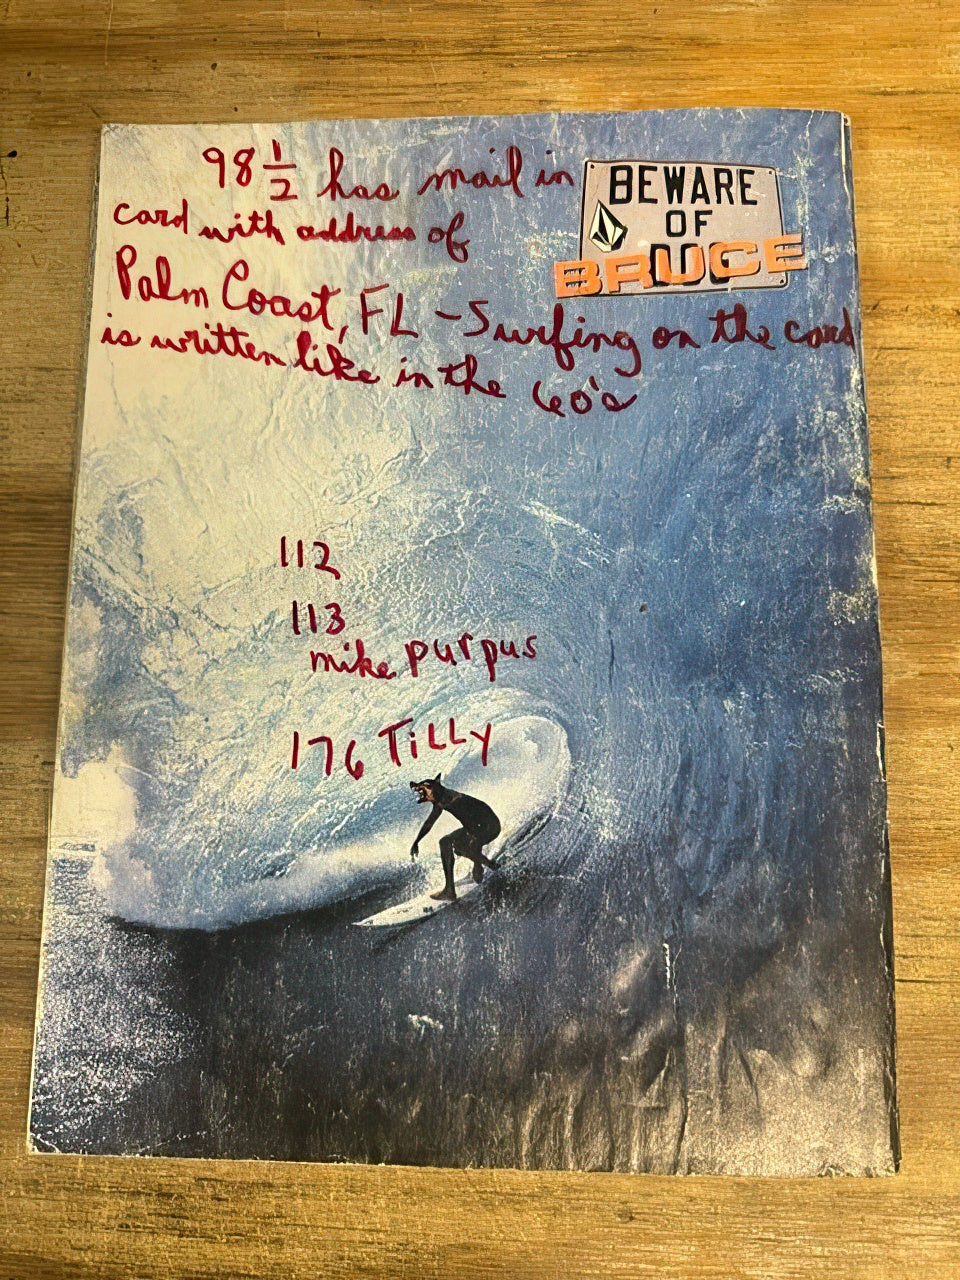 98 1/2 has mail in
card with address of
Palm Coast, FL - Surfing on the card
is written like in the 60's
BEWARE
OF
DOG
BRUCE
112
113
mike purpus
176 TiLLy